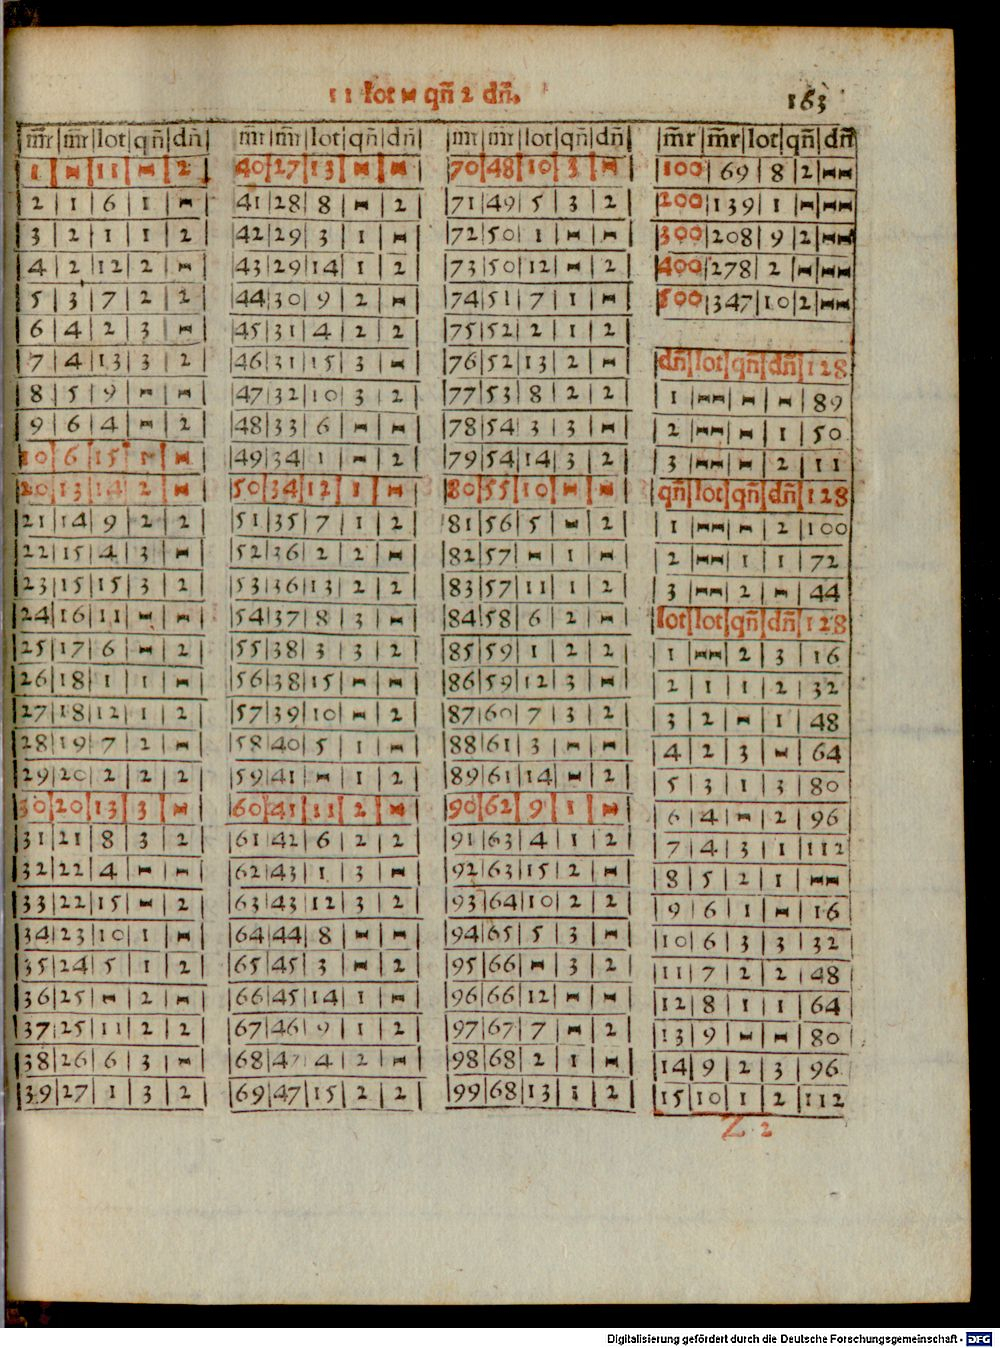 11 lot – qñ 2 dñ.
163
m̄r m̄r lot qñ dñ
1 – 11 – 2
2 1 6 1 –
3 2 1 1 2
4 2 12 2 –
5 3 7 2 2
6 4 2 3 –
7 4 13 3 2
8 5 9 – –
9 6 4 – 2
10 6 15 1 –
20 13 14 2 –
21 14 9 2 2
22 15 4 3 –
23 15 15 3 2
24 16 11 – –
25 17 6 – 2
26 18 1 1 –
27 18 12 1 2
28 19 7 2 –
29 20 2 2 2
30 20 13 3 –
31 21 8 3 2
32 22 4 – –
33 22 15 – 2
34 23 10 1 –
35 24 5 1 2
36 25 – 2 –
37 25 11 2 2
38 26 6 3 –
39 27 1 3 2
m̄r m̄r lot qñ dñ
40 27 13 – –
41 28 8 – 2
42 29 3 1 –
43 29 14 1 2
44 30 9 2 –
45 31 4 2 2
46 31 15 3 –
47 32 10 3 2
48 33 6 – –
49 34 1 – 2
50 34 12 1 –
51 35 7 1 2
52 36 2 2 –
53 36 13 2 2
54 37 8 3 –
55 38 3 3 2
56 38 15 – –
57 39 10 – 2
58 40 5 1 –
59 41 – 1 2
60 41 11 2 –
61 42 6 2 2
62 43 1 3 –
63 43 12 3 2
64 44 8 – –
65 45 3 – 2
66 45 14 1 –
67 46 9 1 2
68 47 4 2 –
69 47 15 2 2
m̄r m̄r lot qñ dñ
70 48 10 3 –
71 49 5 3 2
72 50 1 – –
73 50 12 – 2
74 51 7 1 –
75 52 2 1 2
76 52 13 2 –
77 53 8 2 2
78 54 3 3 –
79 54 14 3 2
80 55 10 – –
81 56 5 – 2
82 57 – 1 –
83 57 11 1 2
84 58 6 2 –
85 59 1 2 2
86 59 12 3 –
87 60 7 3 2
88 61 3 – –
89 61 14 – 2
90 62 9 1 –
91 63 4 1 2
92 63 15 2 –
93 64 10 2 2
94 65 5 3 –
95 66 – 3 2
96 66 12 – –
97 67 7 – 2
98 68 2 1 –
99 68 13 1 2
m̄r m̄r lot qñ dñ
100 69 8 2 ––
200 139 1 – ––
300 208 9 2 ––
400 278 2 – ––
500 347 10 2 ––
dñ lot qñ dñ 128
1 –– – – 89
2 –– – 1 50
3 –– – 2 11
qñ lot qñ dñ 128
1 –– – 2 100
2 –– 1 1 72
3 –– 2 – 44
lot lot qñ dñ 128
1 –– 2 3 16
2 1 1 2 32
3 2 – 1 48
4 2 3 – 64
5 3 1 3 80
6 4 – 2 96
7 4 3 1 112
8 5 2 1 ––
9 6 1 – 16
10 6 3 3 32
11 7 2 2 48
12 8 1 1 64
13 9 – – 80
14 9 2 3 96
15 10 1 2 112
Z 2
Digitalisierung gefördert durch die Deutsche Forschungsgemeinschaft - DFG